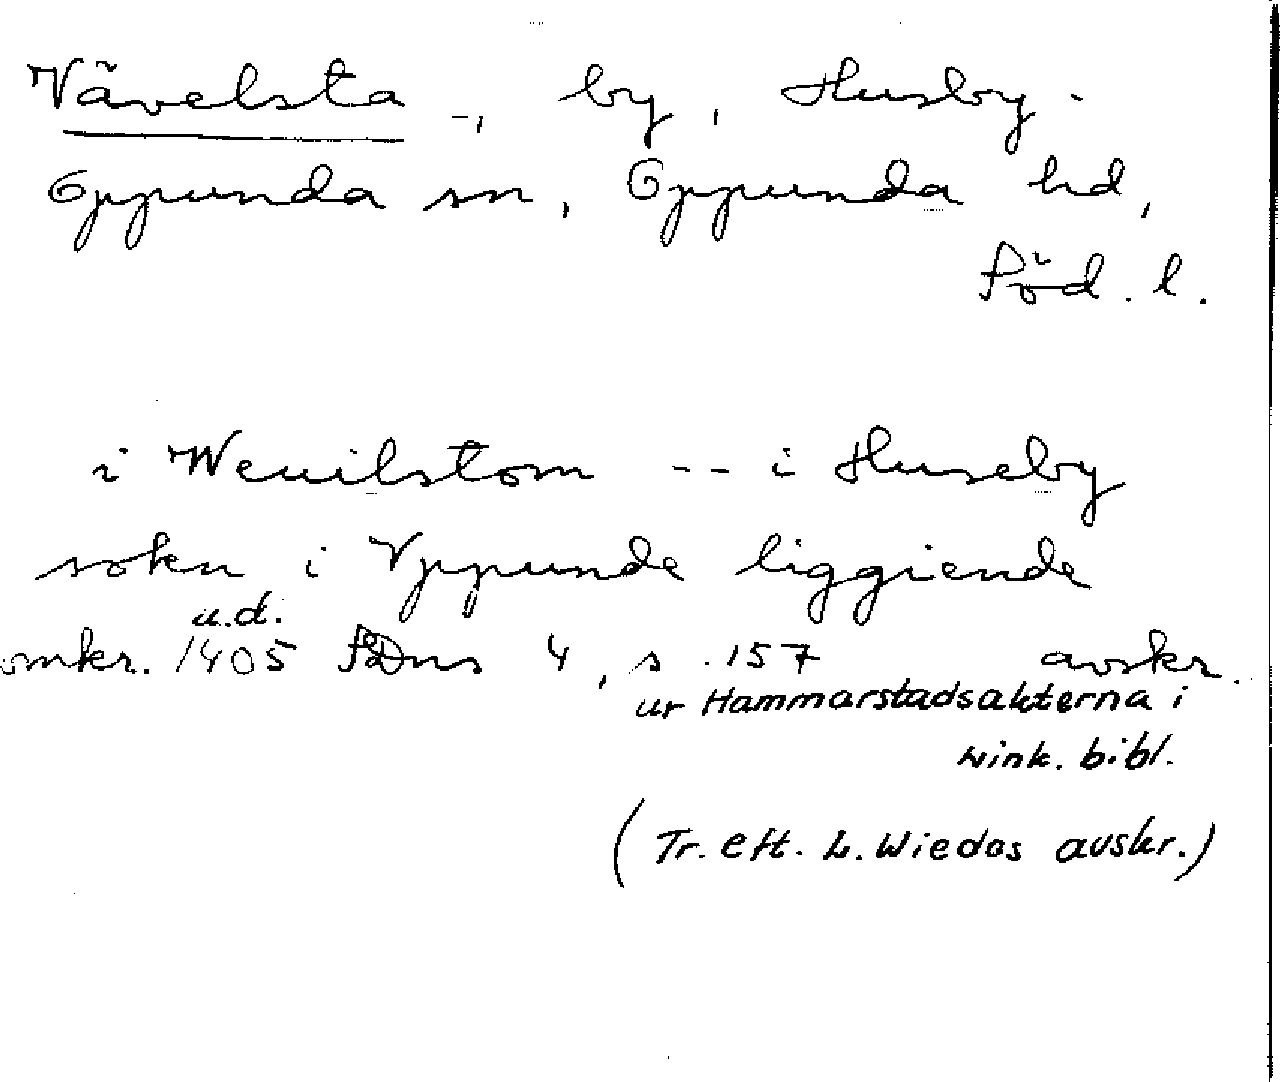 Vävelsta -, by, Husby-
Oppunda sn, Oppunda hd,
Söd. l.
i Weuilstom -- i Huseby
sokn i Vppunde liggiende
u.d.
omkr. 1405 SDns 4, s. 157 avskr.
ur Hammarstadsakterna i
Link. bibl.
(Tr. eft. L. Wiedes avskr.)